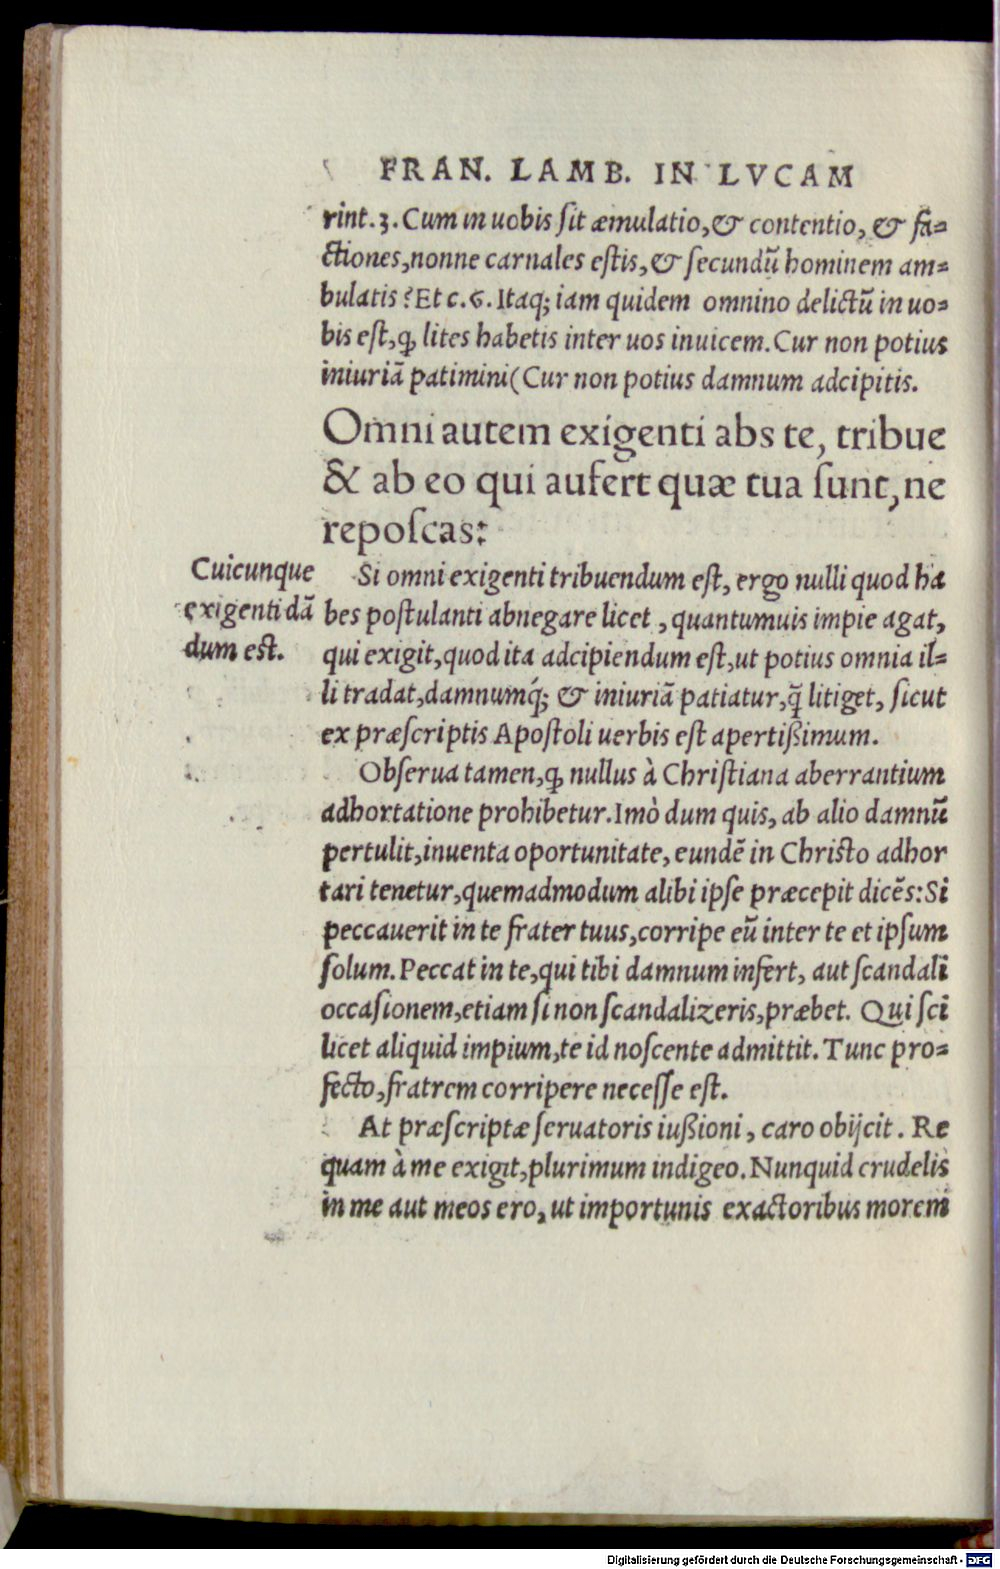 FRAN. LAMB. IN LVCAM
rint.3. Cum in uobis sit æmulatio, & contentio, & fa-
ctiones, nonne carnales estis, & secundũ hominem am-
bulatis? Et c.6. Itaq; iam quidem omnino delictũ in uo-
bis est, ꝙ lites habetis inter uos inuicem. Cur non potius
iniuriã patimini( Cur non potius damnum adcipitis.
Omni autem exigenti abs te, tribue
& ab eo qui aufert quæ tua sunt, ne
reposcas:
Cuicunque
exigenti dã
dum est.
Si omni exigenti tribuendum est, ergo nulli quod ha
bes postulanti abnegare licet, quantumuis impie agat,
qui exigit, quod ita adcipiendum est, ut potius omnia il-
li tradat, damnumq́; & iniuriã patiatur, q̃ litiget, sicut
ex præscriptis Apostoli uerbis est apertißimum.
Obserua tamen, ꝙ nullus à Christiana aberrantium
adhortatione prohibetur. Imò dum quis, ab alio damnũ
pertulit, inuenta oportunitate, eundẽ in Christo adhor
tari tenetur, quemadmodum alibi ipse præcepit dicẽs: Si
peccauerit in te frater tuus, corripe eũ inter te et ipsum
solum. Peccat in te, qui tibi damnum infert, aut scandali
occasionem, etiam si non scandalizeris, præbet. Qui sci
licet aliquid impium, te id noscente admittit. Tunc pro-
fecto, fratrem corripere necesse est.
At præscriptæ seruatoris iußioni, caro obijcit. Re
quam à me exigit, plurimum indigeo. Nunquid crudelis
in me aut meos ero, ut importunis exactoribus morem
Digitalisierung gefördert durch die Deutsche Forschungsgemeinschaft - DFG